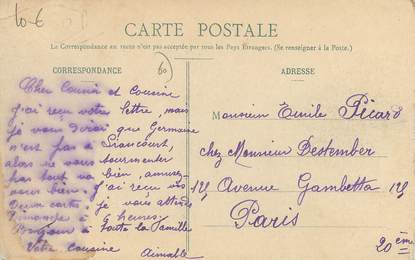 10-6
CARTE POSTALE
La Correspondance au recto n'est pas acceptée par tous les Pays Étrangers. (Se renseigner à la Poste.)
CORRESPONDANCE
60
ADRESSE
Cher Cousin et Cousine
j'ai reçu votre lettre, mais
je vous dirai que Germaine
n'est pas à Liancourt,
alors ne vous tourmenter
pas tout va bien, amusez-
vous bien, j'ai reçu vos
Deux cartes, je vous attends
Dimanche à 6 heures
Bonjour à toute la famille
Votre cousine Aimable
Monsieur Émile Picard
chez Monsieur Destember
121 Avenue Gambetta 121
Paris
20ème